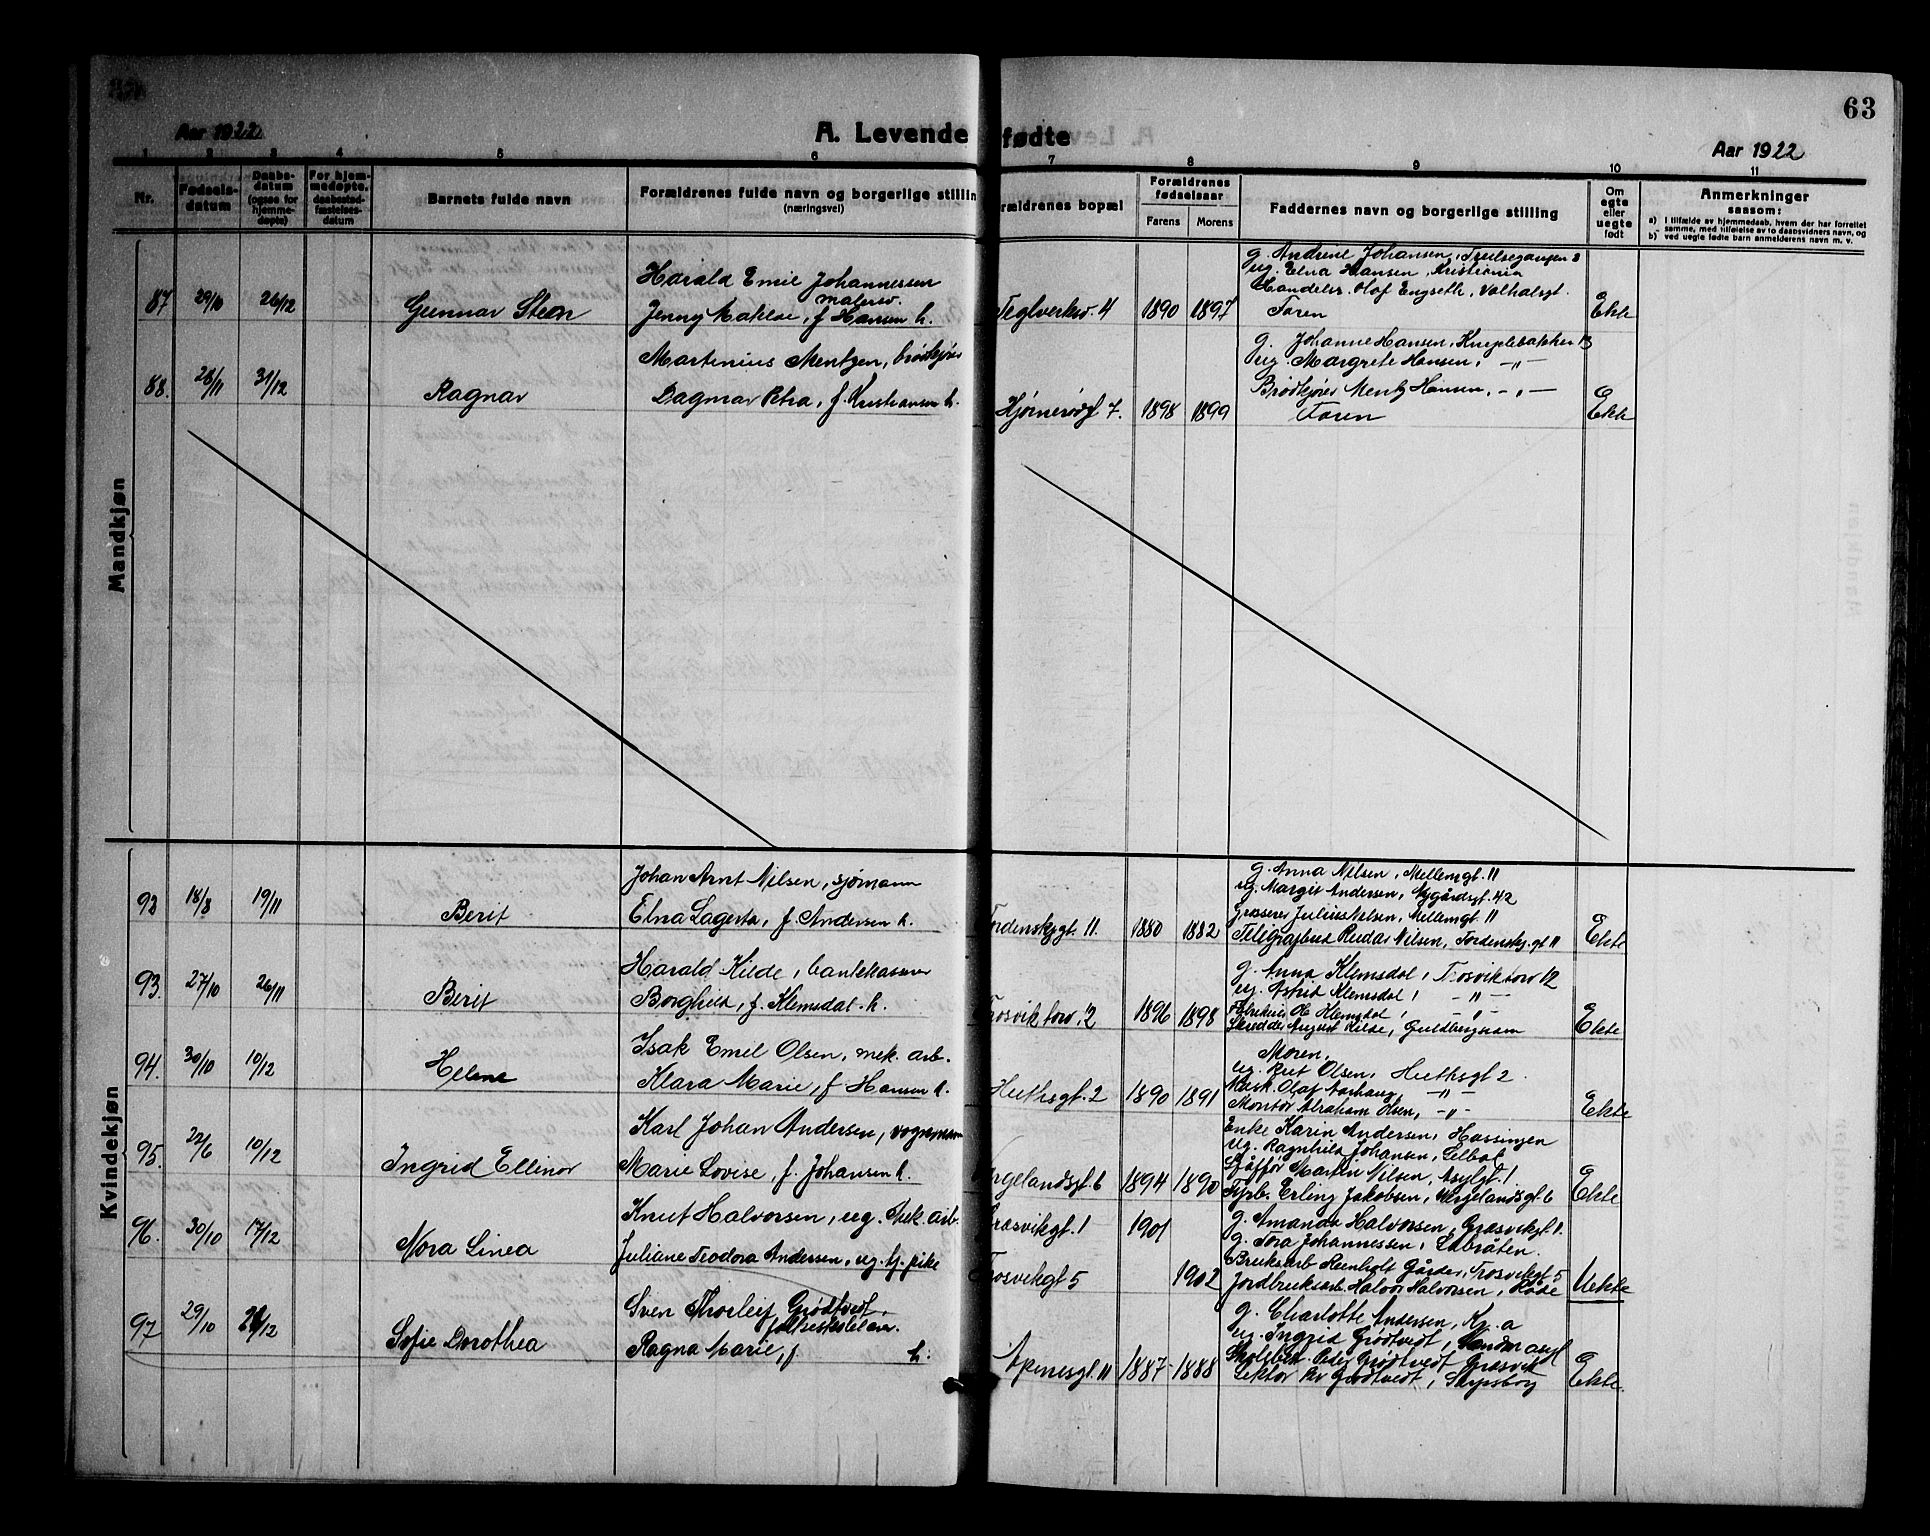 63
Aar 1922
A. Levende fødte
Aar 1922
1 2 3 4 5 6 7 8 9 10 11
Nr.
Fødsels-
datum
Daabs-
datum
(ogsaa for
hjemme-
døpte)
For hjem-
medøpte,
daabsstad-
fæstelses-
datum
Barnets fulde navn
Forældrenes fulde navn og borgerlige stilling
(næringsvei)
rældrenes bopæl
Forældrenes
fødselsaar
Farens Morens
Faddernes navn og borgerlige stilling
Om
egte
eller
uegte
født
Anmerkninger
saasom:
a) I tilfælde av hjemmedaab, hvem der har forrettet
samme, med tilføielse av to daabsvidners navn, og
b) ved uegte fødte barn anmelderens navn m. v.
Mandkjøn
87 29/10 26/12 Gunnar Steen
Harald Emil Johannessen
malersv.
Jenny Mathea, f. Hansen h.
Teglverksv. 4 1890 1897
g. Andrine Johansen, Trulsegangen 2
ug. Elna Hansen, Kristiania
Handelsr. Olaf Engseth, Valhalsgt.
Faren
Ekte
88. 28/11 31/12 Ragnar
Martinius Mentzen, brødkjører
Dagmar Petra, f. Kristiansen h.
Hjørnerødgt 7. 1898 1899
g. Johanne Hansen, Kniplebakken 13
ug. Margrete Hansen, -„-
Brødkjører Mentz Hansen, -„-
Faren
Ekte
Kvindekjøn
92 18/8 19/11 Berit
Johan Arnt Nilsen, sjømann
Elna Lagerta, f. Andersen h.
Tordenskjgt. 11. 1880 1882
g. Anna Nilsen, Mellemgt. 11
ug. Margit Andersen, Nygårdsgt. 42
Grosserer Julius Nilsen, Mellemgt. 11
Telegrafbud Reidar Nilsen, Tordenskj. gt 11
Ekte
93. 27/10 26/11 Berit
Harald Kilde, bankkasserer
Borghild, f. Klemsdal h.
Trosvik torv 12 1896 1898
g. Anna Klemsdal, Trosvik torv 12
ug. Astrid Klemsdal, -„-
Klemsdal, -„-
August Kilde, Guldbergsam
Ekte
94. 30/10 10/12 Helene
Isak Emil Olsen, mek. arb.
Klara Marie, f. Hansen h.
Huthsgt. 2 1890 1891
Moren,
ug. Rut Olsen, Huthsgt 2
Mask. Olaf Aarhaug, -„-
Montør Abraham Olsen, -„-
Ekte
95. 22/6 10/12 Ingrid Ellinor
Karl Johan Andersen, vognmann
Marie Lovise, f. Johansen h.
rgelandsgt. 6 1894 1890
Enke Karin Andersen, Hassingen
ug. Ragnhild Johansen, Selbak
Sjåffør Martin Nilsen, Asylgt. 1.
Fyrb. Erling Jakobsen, Wergelandsgt 6
Ekte
96. 30/10 17/12 Nora Linea
Knut Halvorsen, ug. mek. arb.
Juliane Teodora Andersen, ug. tj. pike
Græsvikgt. 1 1901
Trosvikgt 5 1902
g. Amanda Halvorsen, Græsvikgt 1.
g. Tora Johannessen, Labråten.
Bruksarb. Reinholt Gårder, Trosvikgt. 5
Jordbruksarb. Halvor Halvorsen, Råde
Uekte
97 29/10 26/12 Sofie Dorothea
Sven Thorleif Grødtvedt,
Ragna Marie, f h.
Apenesgt. 11 1887 1888
g. Charlotte Andersen, Kr. a
ug. Ingrid Grødtvedt,
Peder Grødtvedt Græsvik
Lektor Grødtvedt, Sarpsborg
Ekte.